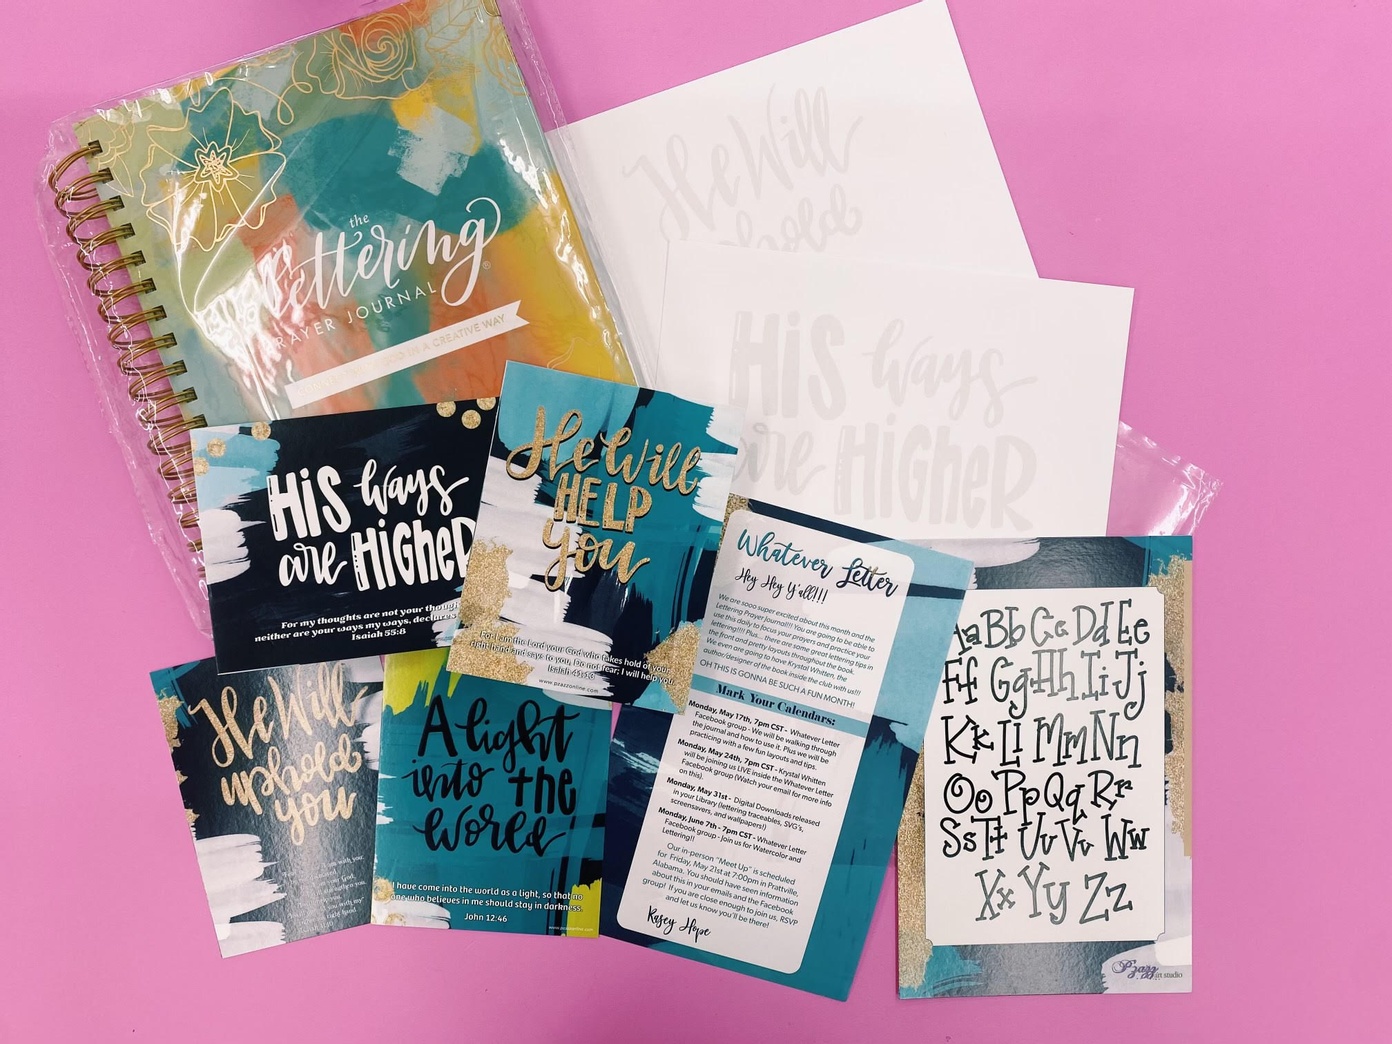 the
Lettering
PRAYER JOURNAL
IN A CREATIVE WAY
He Will
uphold
HiS ways
are HiGHeR
HiS ways
are HiGHeR
For my thoughts are not your
neither are your ways my ways, declares
Isaiah 55:8
He Will
HELP
you
For I am the Lord your God who takes hold of your
right hand and says to you, Do not fear; I will help you.
Isaiah 41:13
www.pzazzonline.com
He Will
uphold
you
A light
into the
World
I have come into the world as a light, so that no
one who believes in me should stay in darkness.
John 12:46
www.pzazzonline.com
Whatever Letter
Hey Hey Y'all!!!
We are sooo super excited about this month and the
Lettering Prayer Journal!!! You are going to be able to
use this daily to focus your prayers and practice your
lettering!!!! Plus... there are some great lettering tips in
the front and pretty layouts throughout the book.
We even are going to have Krystal Whitten, the
author/designer of the book inside the club with us!!!
OH THIS IS GONNA BE SUCH A FUN MONTH!
Mark Your Calendars:
Monday, May 17th, 7pm CST - Whatever Letter
Facebook group - We will be walking through
the journal and how to use it. Plus we will be
practicing with a few fun layouts and tips.
Monday, May 24th, 7pm CST - Krystal Whitten
will be joining us LIVE inside the Whatever Letter
Facebook group (Watch your email for more info
on this).
Monday, May 31st - Digital Downloads released
in your Library (lettering traceables, SVG's,
screensavers, and wallpapers!)
Monday, June 7th - 7pm CST - Whatever Letter
Facebook group - Join us for Watercolor and
Lettering!!
Our in-person "Meet Up" is scheduled
for Friday, May 21st at 7:00pm in Prattville,
Alabama. You should have seen information
about this in your emails and the Facebook
group! If you are close enough to join us, RSVP
and let us know you'll be there!
Kasey Hope
Aa Bb Cc Dd Ee
Ff Gg Hh Ii Jj
Kk Ll Mm Nn
Oo Pp Qq Rr
Ss Tt Uu Vv Ww
Xx Yy Zz
Pzazz art studio